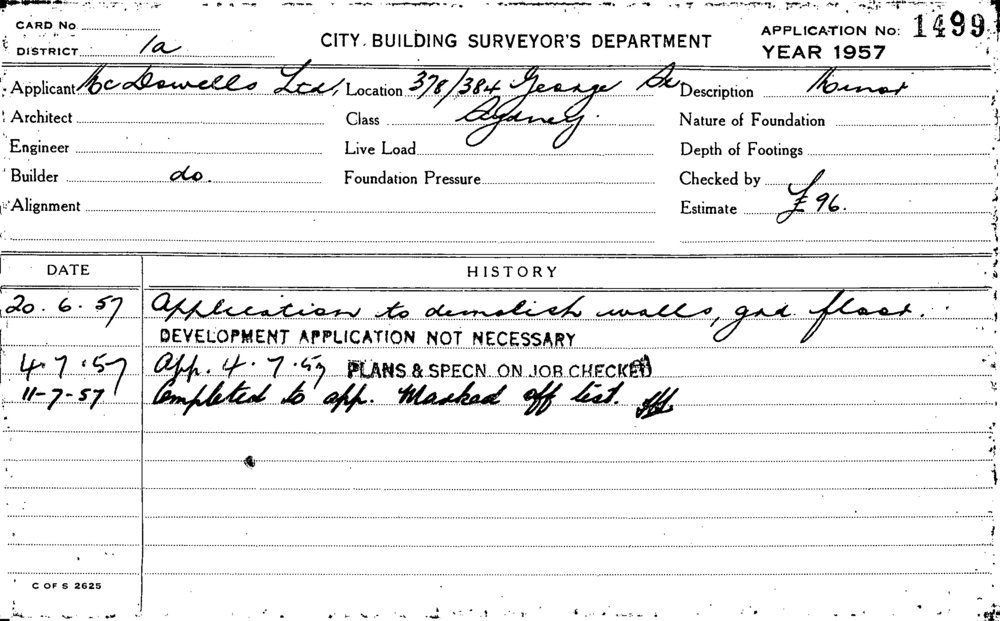 CARD No
DISTRICT 1a
CITY BUILDING SURVEYOR'S DEPARTMENT
APPLICATION No: 1499
YEAR 1957
Applicant McDowells Ltd, Location 378/384 George St Description Minor
Architect Class Sydney. Nature of Foundation
Engineer Live Load Depth of Footings
Builder do. Foundation Pressure Checked by
Alignment Estimate £96.
DATE HISTORY
20.6.57 Application to demolish walls, grd floor.
DEVELOPMENT APPLICATION NOT NECESSARY
4.7.57 App. 4.7.57 PLANS & SPECN. ON JOB CHECKED
11-7-57 Completed to app. Marked off list.
C OF S 2625